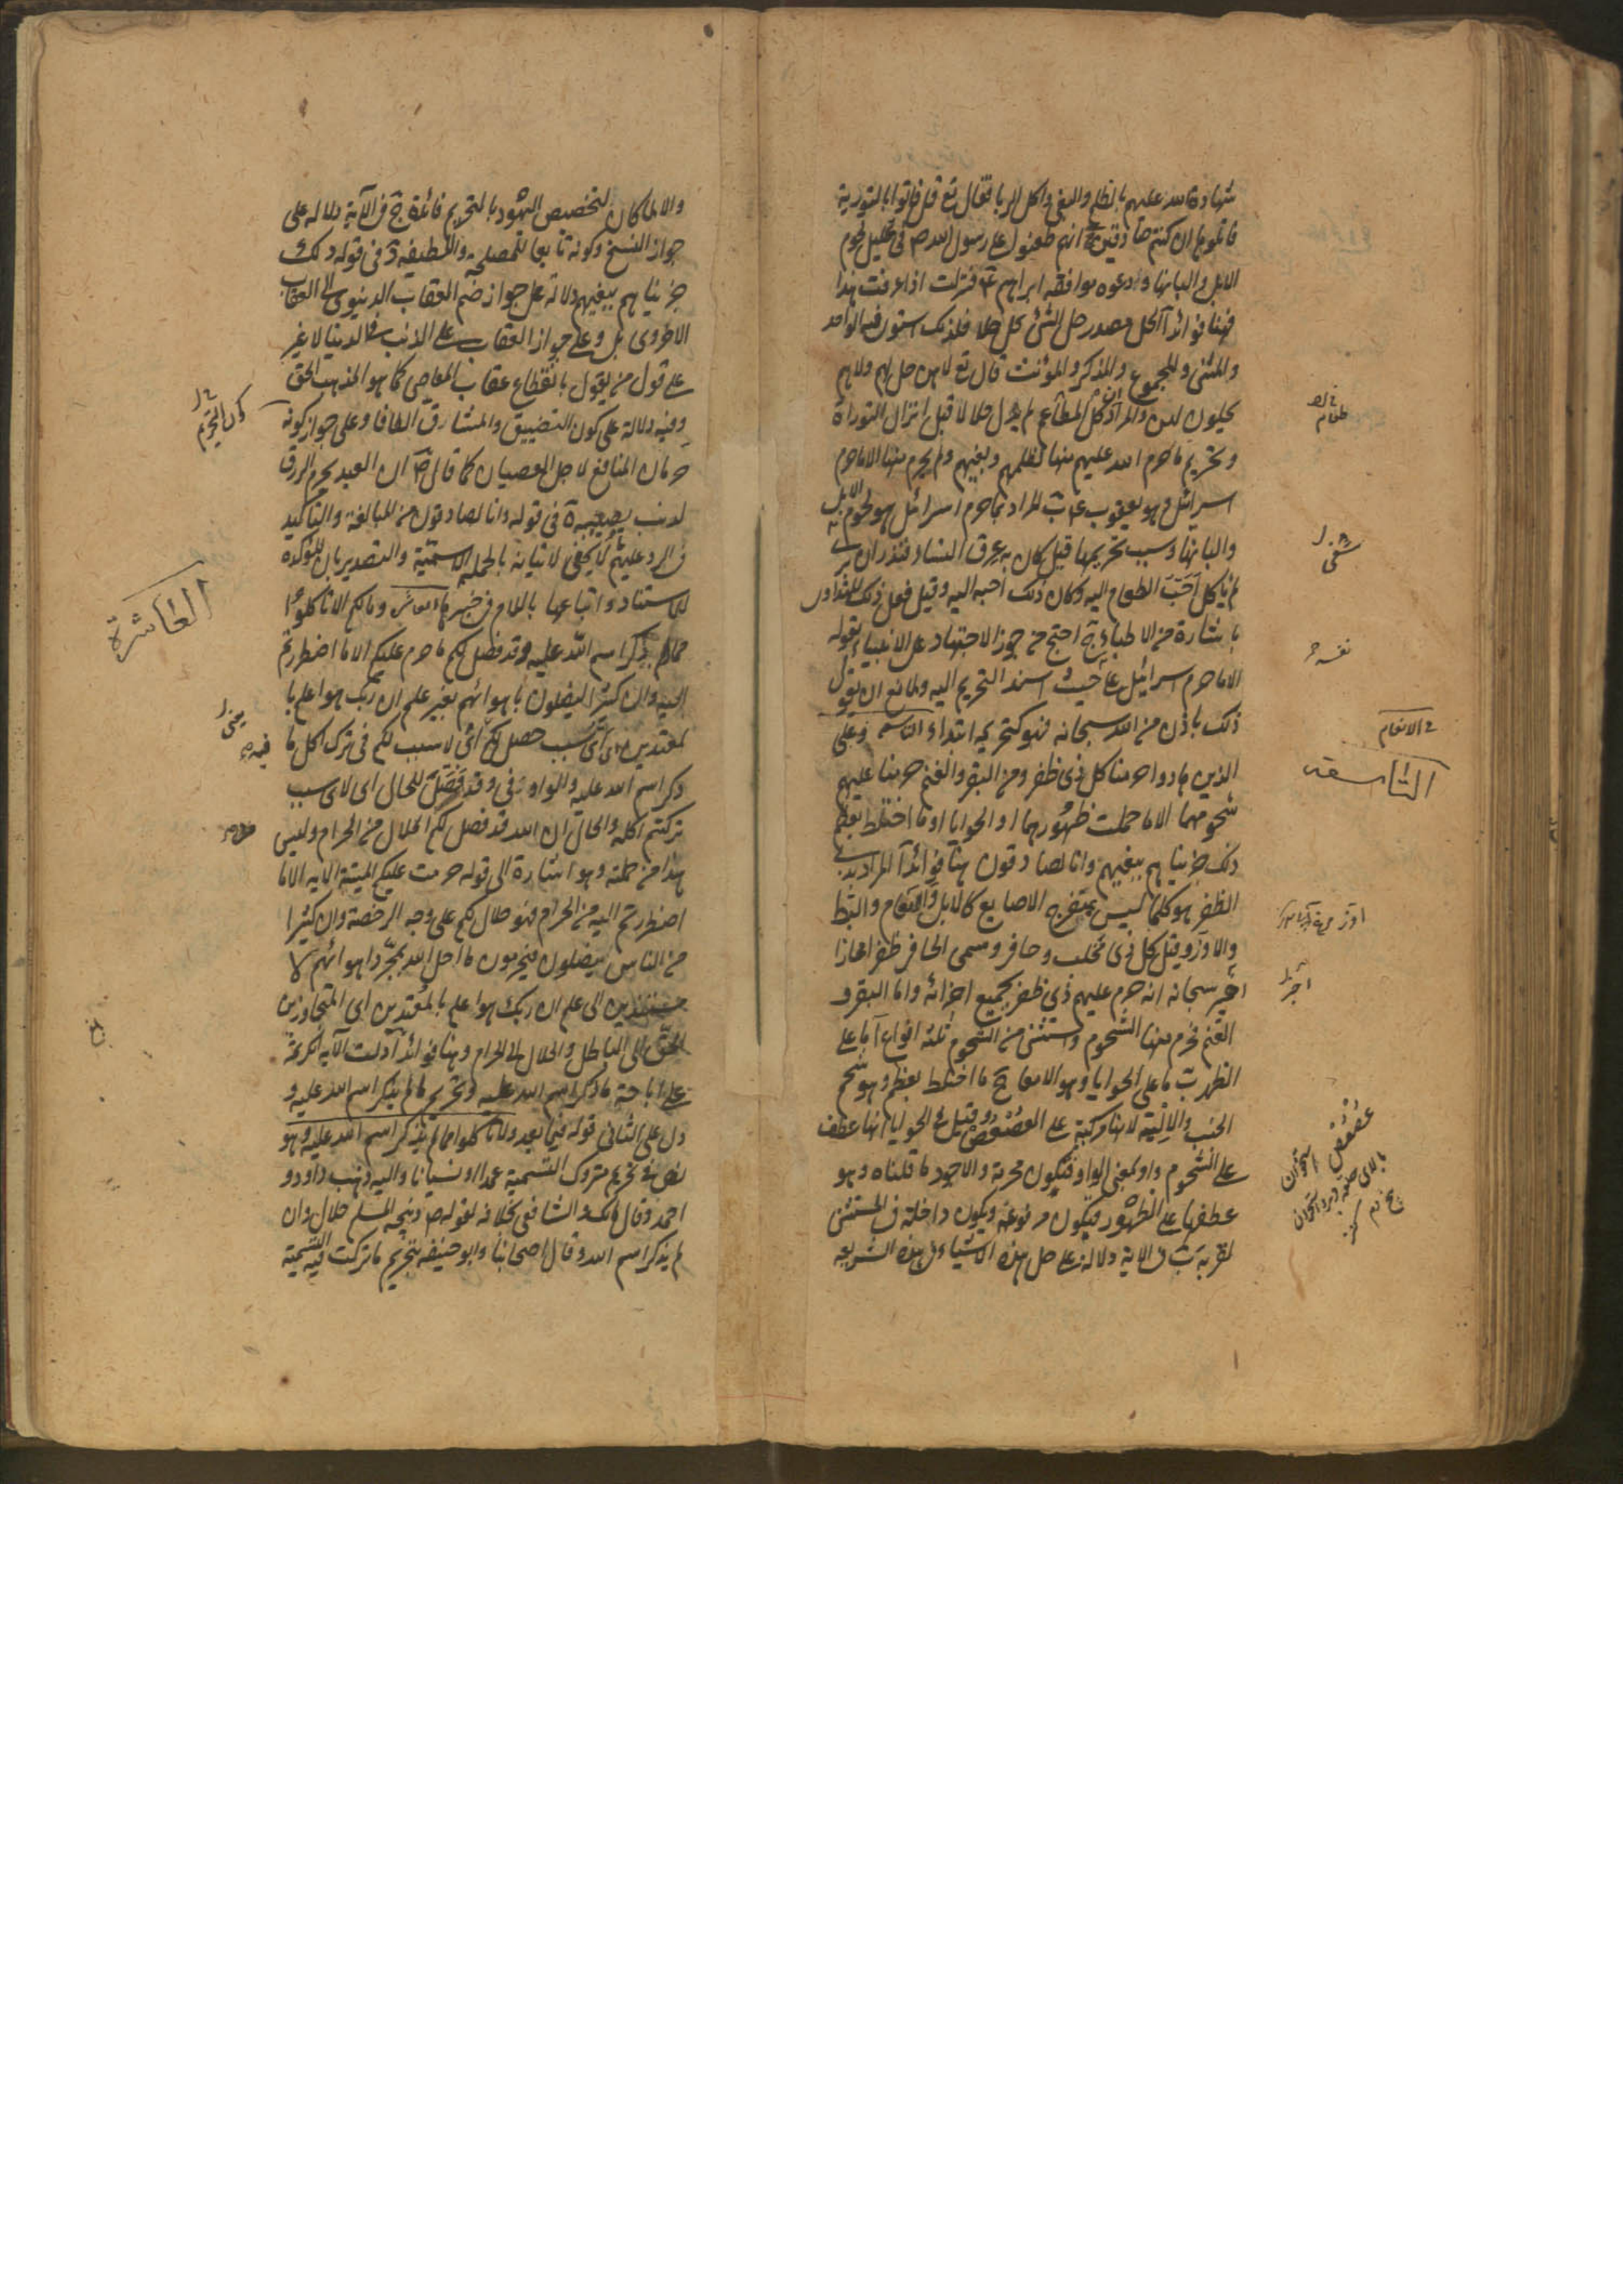 شهادة الله عليهم بالظلم والبغي واكل الربا فقال تع قل فاتوا بالتورية
فاتلوها ان كنتم صادقين ج انهم طعنوا على رسول الله ص في تحليل لحوم
الابل والبانها وادعوه موافقه ابراهيم ع فنزلت اذا عرفت هذا
فهنا فوائد آ الحل مصدر حل الشئ يحل حلا فلذلك استوى فيه الواحد
والمثنى والمجموع والمذكر والمؤنث قال تع لا هن حل لهم ولا هم
يحلون لهن والمراد ان كل المطاعم لم يزل حلالا قبل انزال التوراة
وتحريم ما حرم الله عليهم منها لظلمهم وبغيهم ولم يحرم منها الا ما حرم
اسرائيل وهو يعقوب ع ب المراد بما حرم اسرائيل هو لحوم الابل
والبانها وسبب تحريمها قيل كان به عرق النساء فنذر ان برئ
لم ياكل احب الطعام اليه وكان ذلك احبه اليه وقيل فعل ذلك للتداوى
باشارة من الاطباء ج احتج من جوز الاجتهاد على الانبياء بقوله
الا ما حرم اسرائيل على حيث اسند التحريم اليه ولمانع ان يقول
ذلك باذن من الله سبحانه فهو كتحريمه ابتداء التاسعه وعلى
الذين هادوا حرمنا كل ذى ظفر ومن البقر والغنم حرمنا عليهم
شحومهما الا ما حملت ظهورهما او الحوايا او ما اختلط بعظم
ذلك جزيناهم ببغيهم وانا لصادقون هنا فوائد آ المراد بذي
الظفر هو كلما ليس بمتفرج الاصابع كالابل والنعام والبط
والاوز وقيل كل ذى مخلب وحافر وسمى الحافر ظفرا مجازا
اخبر سبحانه انه حرم عليهم ذي ظفر بجميع اجزائه واما البقر و
الغنم فحرم منها الشحوم واستثنى من الشحوم ثلثه انواع آ ما على
الظهر ب ما على الحوايا وهو الامعاء ج ما اختلط بعظم وهو شحم
الجنب والالية لانها مركبة على العصعص وقيل في الحوايا انها عطف
على الشحوم واو بمعنى الواو فتكون محرمة والاجود ما قلناه وهو
عطفها على الظهور فتكون مرفوعة ويكون داخلة في المستثنى
لقربه ب في الاية دلالة على حل هذه الاشياء في هذه الشريعه
طعام
شفى
نفسه
في الانعام
التاسعه
عصعص استخوان
والا لما كان لتخصيص اليهود بالتحريم فائدة ج في الآية دلالة على
جواز النسخ وكونه تابعا للمصلحة واللطيفه د في قوله ذلك
جزيناهم ببغيهم دلالة على جواز ضم العقاب الدنيوى الى العقاب
الاخروى بل وعلى جواز العقاب على الذنب في الدنيا لا غير
على قول من يقول بانقطاع عقاب المعاصى كما هو المذهب الحق
وفيه دلالة على كون التضييق والمشارق الطافا وعلى جواز كونه
حرمان المنافع لاجل العصيان كما قال ص ان العبد يحرم الرزق
لذنب يصيبه ه في قوله وانا لصادقون من المبالغة والتاكيد
في الرد عليهم ما لا يخفى لاتيانه بالجملة الاسمية والتصدير بان المؤكده
للاستناد واتباعها باللام في خبرها العاشرة وما لكم الا تاكلوا
مما ذكر اسم الله عليه وقد فصل لكم ما حرم عليكم الا ما اضطررتم
اليه وان كثيرا ليضلون باهوائهم بغير علم ان ربك هو اعلم با
لمعتدين اى اى سبب حصل لكم اى لا سبب لكم في ترك اكل ما
ذكر اسم الله عليه والواو في وقد فصل للحال اى لاى سبب
تركتم اكله والحال ان الله قد فصل لكم الحلال من الحرام وليس
هذا من جملته وهو اشارة الى قوله حرمت عليكم الميتة الايه الا ما
اضطررتم اليه من الحرام فهو حلال لكم على وجه الرخصة وان كثيرا
من الناس ليضلون فيحرمون ما احل الله بمجرد اهوائهم لا
مستندين الى علم ان ربك هو اعلم بالمعتدين اى المتجاوزين
الحق الى الباطل والحلال الى الحرام وهنا فوائد آ دلت الآية الكريمة
على اباحة ما ذكر اسم الله عليه وتحريم ما لم يذكر اسم الله عليه و
دل على الثانى قوله فيما بعد ولا تاكلوا مما لم يذكر اسم الله عليه وهو
نص في تحريم متروك التسمية عمدا او نسيانا واليه ذهب داود و
احمد وقال مالك والشافعى بخلافه لقوله ص ذبيحه المسلم حلال وان
لم يذكر اسم الله وقال اصحابنا وابو حنيفه بتحريم ما تركت فيه التسمية
كون التحريم
العاشرة
يعنى
فيه